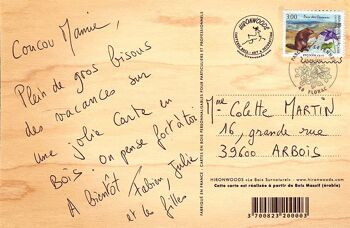 Coucou Mamie,
Plein de gros bisous
des vacances sur
une jolie carte en
BOIS. on pense fort à toi
A bientôt Fabien, Julie
et les filles
HIRONWOODS
3,00
Parc des Cévennes
48 FLORAC
Mme Colette MARTIN
16, grande rue
39600 ARBOIS
HIRONWOODS «Le Bois Surnaturel» www.hironwoods.com
Cette carte est réalisée à partir de Bois Massif (érable)
3 700823 200003